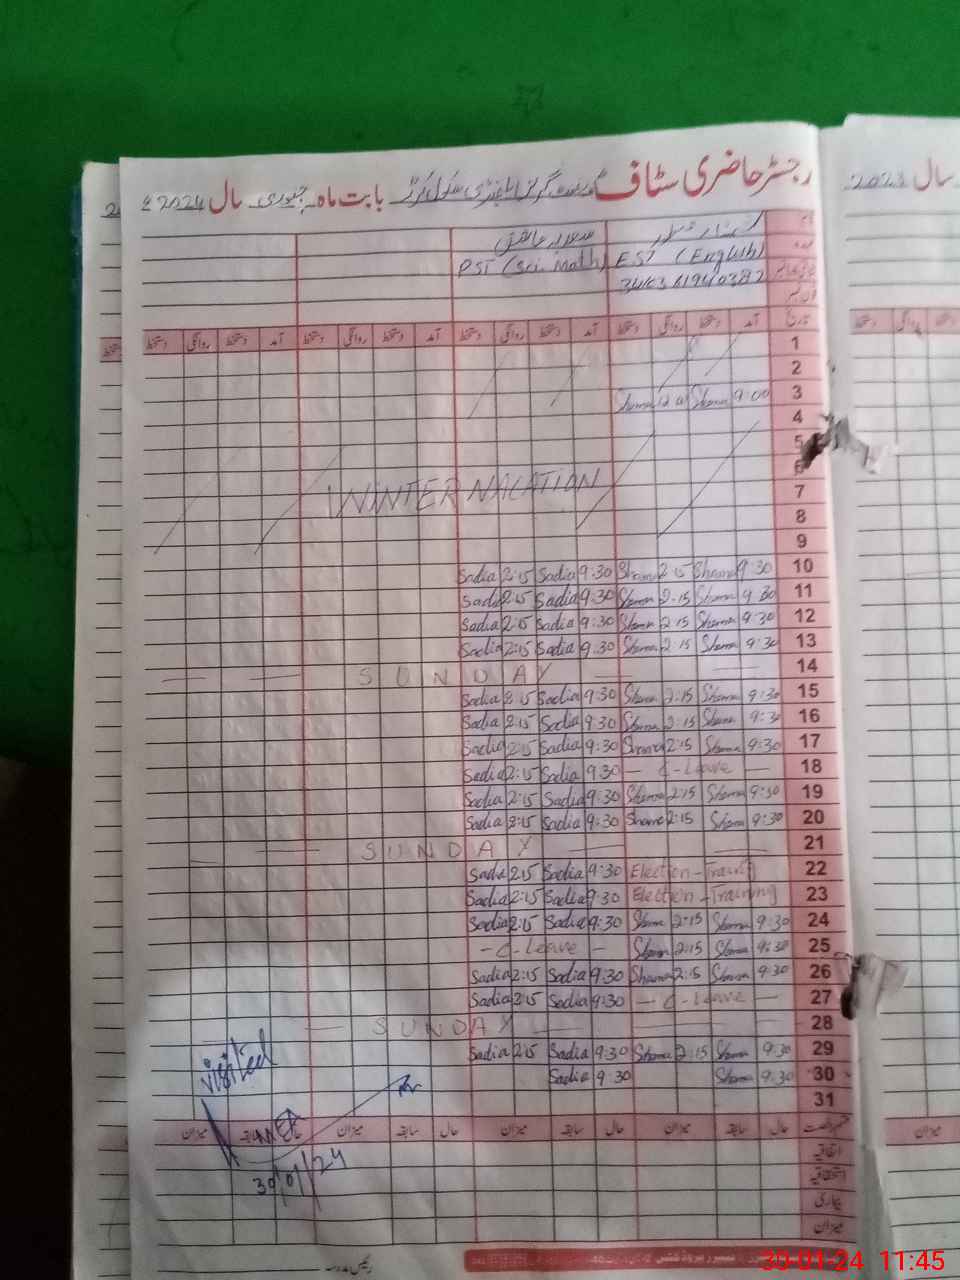 رجسٹر حاضری سٹاف گورنمنٹ گرلز ایلیمنٹری سکول بابت ماہ جنوری سال 2024ء
سال 2024
سعدیہ
PST (Sci. Math) EST (English)
آمد دستخط روانگی دستخط آمد دستخط روانگی دستخط آمد دستخط روانگی دستخط آمد دستخط روانگی دستخط تاریخ
1
2
3 9:00 Shama Shama
4
5
6
WINTER VACATION
7
8
9
Sadia 2:15 Sadia 9:30 Shama 2:15 Shama 9:30 10
Sadia 2:15 Sadia 9:30 Shama 2:15 Shama 9:30 11
Sadia 2:15 Sadia 9:30 Shama 2:15 Shama 9:30 12
Sadia 2:15 Sadia 9:30 Shama 2:15 Shama 9:30 13
SUNDAY 14
Sadia 2:15 Sadia 9:30 Shama 2:15 Shama 9:30 15
Sadia 2:15 Sadia 9:30 Shama 2:15 Shama 9:30 16
Sadia 2:15 Sadia 9:30 Shama 2:15 Shama 9:30 17
Sadia 2:15 Sadia 9:30 - C-Leave - 18
Sadia 2:15 Sadia 9:30 Shama 2:15 Shama 9:30 19
Sadia 2:15 Sadia 9:30 Shama 2:15 Shama 9:30 20
SUNDAY 21
Sadia 2:15 Sadia 9:30 Election - Training 22
Sadia 2:15 Sadia 9:30 Election - Training 23
Sadia 2:15 Sadia 9:30 Shama 2:15 Shama 9:30 24
- C-Leave - Shama 2:15 Shama 9:30 25
Sadia 2:15 Sadia 9:30 Shama 2:15 Shama 9:30 26
Sadia 2:15 Sadia 9:30 - C-Leave - 27
SUNDAY 28
Sadia 2:15 Sadia 9:30 Shama 2:15 Shama 9:30 29
Sadia 9:30 Shama 9:30 30
31
visited
MEA
30/01/24
حال سابقہ میزان حال سابقہ میزان حال سابقہ میزان
اتفاقیہ
استحقاقیہ
بیماری
میزان
رئیس مدرسہ
30-01-24 11:45